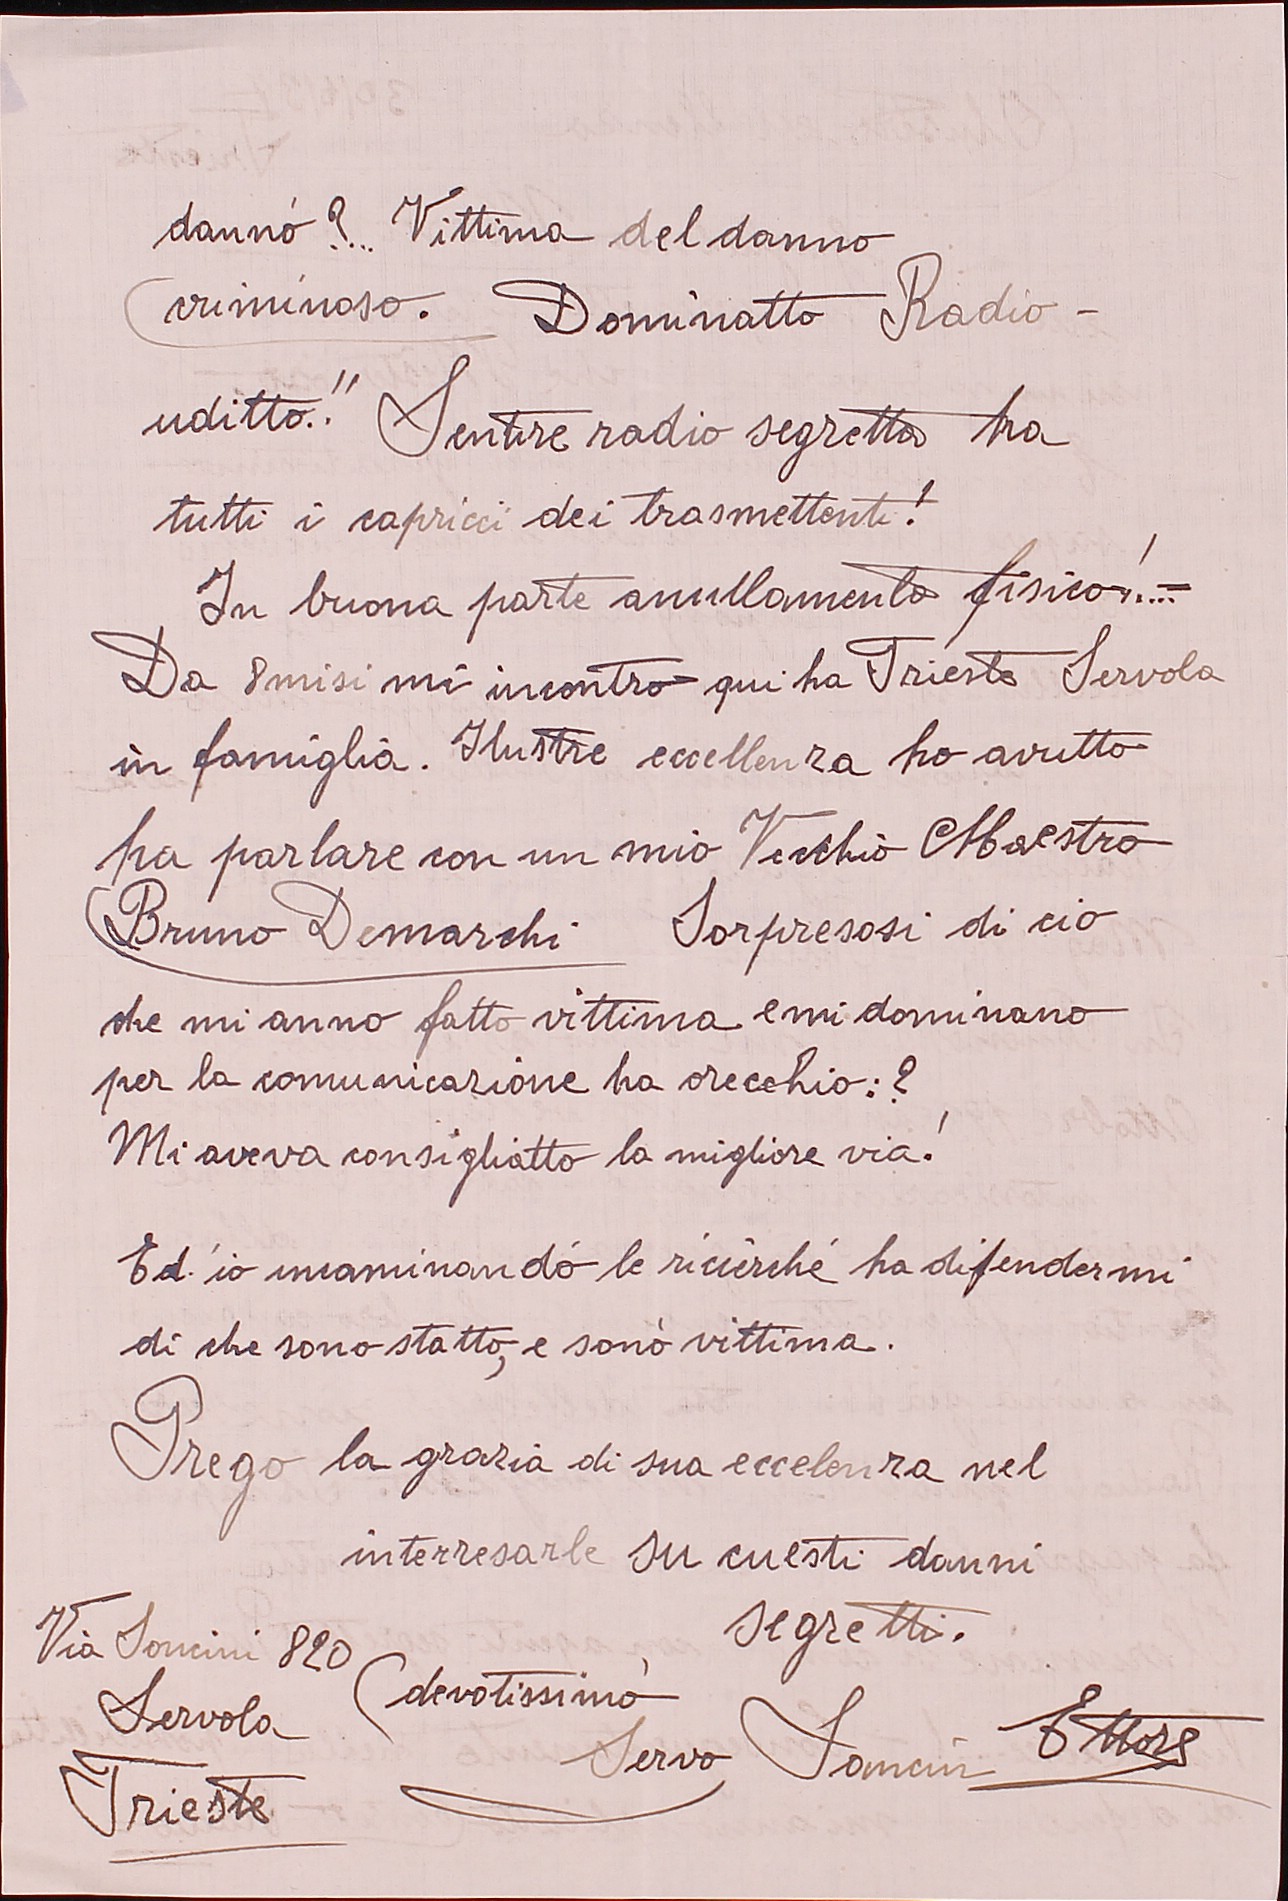 dannó ?... Vittima del danno
criminoso. Dominatto Radio-
uditto.!! Sentire radio segretta ha
tutti i capricci dei trasmettenti!
In buona parte anullamento fisico!...-
Da 8 misi mi incontro qui ha Trieste Servola
in famiglia. Ilustre eccellenza ho avutto
ha parlare con un mio Vecchio Maestro
Bruno Demarchi Sorpresosi di cio
che mi anno fatto vittima e mi dominano
per la comunicazione ha orecchio:?
Mi aveva consigliatto la migliore via!
Ed' io incaminandó le ricierché ha difendermi
di che sono statto, e sonó vittima.
Prego la grazia di sua eccelenza nel
interresarle su cuesti danni
segretti.
Via Soncini 820
Servola
Trieste
devotissimo
Servo Sancin Ettore